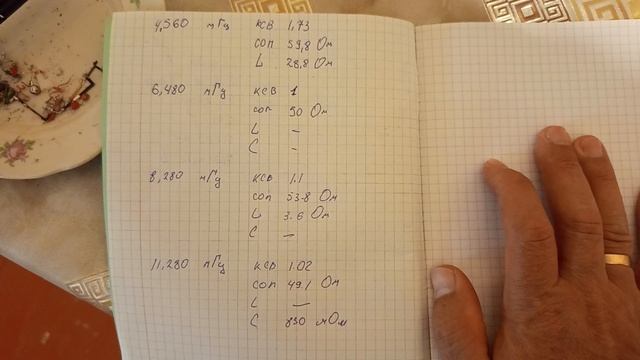 4,560 мГц КСВ 1,73
соп 59,8 Ом
L 28,8 Ом
6,480 мГц КСВ 1
соп 50 Ом
L –
C –
8,280 мГц КСВ 1.1
соп 53.8 Ом
L 3.6 Ом
C –
11,280 мГц КСВ 1.02
соп 49.1 Ом
L –
C 830 мОм